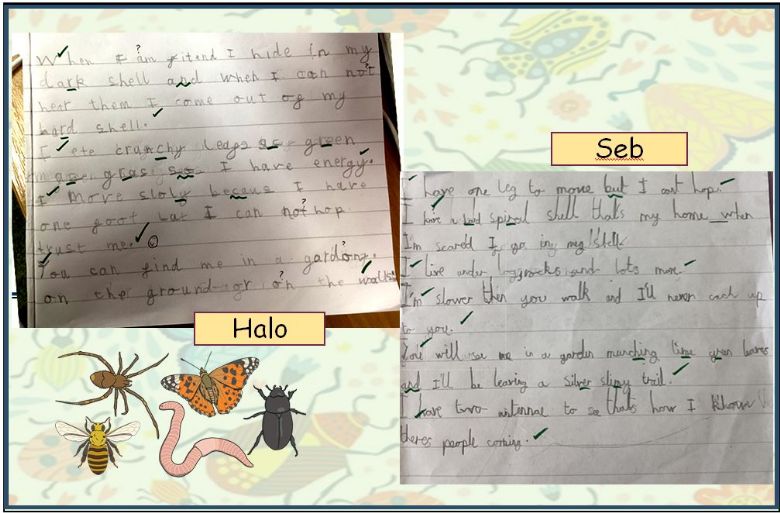 When I am fritend I hide in my
dark shell and when I can not
hear them I come out of my
hard shell.
I ete crunchy leafs as green
as gras so I have energy.
I move slowly becaus I have
one foot but I can not hop
trust me.
You can find me in a garden.
on the ground or on the walls
Halo
Seb
I have one leg to move but I cant hop.
I have a hard spiral shell that's my home when
I'm scared I go in my shell.
I live under logs rocks and lots more.
I'm slower then you walk and I'll never cach up
to you.
You will see me in a garden munching lime green leaves
and I'll be leaving a silver slimy trail.
I have two antennae to see that's how I know
theres people coming.